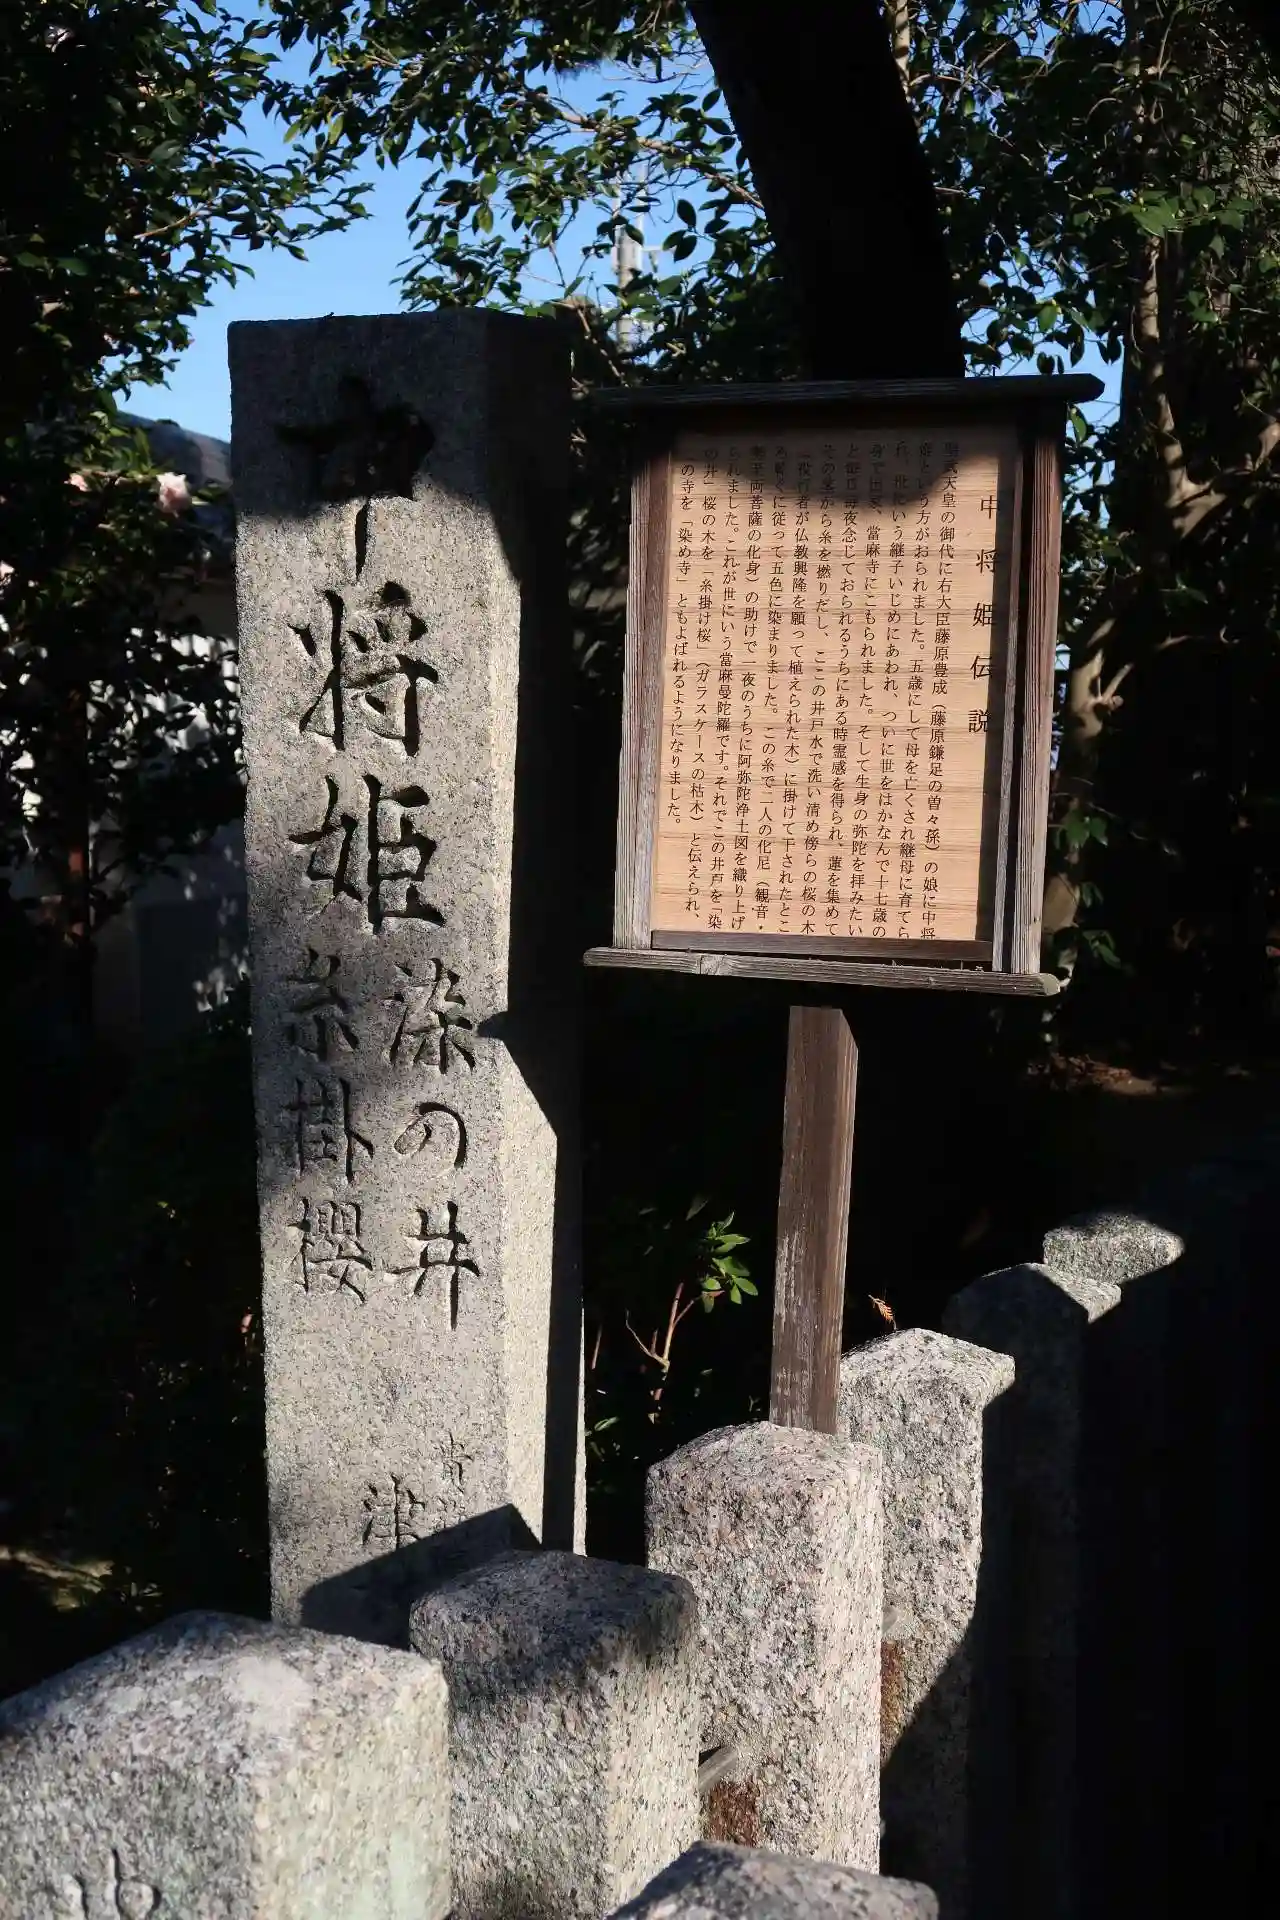 中将姫
染の井
糸掛櫻
津
中将姫伝説
聖武天皇の御代に右大臣藤原豊成（藤原鎌足の曽々孫）の娘に中将
姫という方がおられました。五歳にして母を亡くされ継母に育てら
れ、世にいう継子いじめにあわれ、ついに世をはかなんで十七歳の
身で出家、當麻寺にこもられました。そして生身の弥陀を拝みたい
と毎日毎夜念じておられるうちにある時霊感を得られ、蓮を集めて
その茎から糸を撚りだし、ここの井戸水で洗い清め傍らの桜の木
（役行者が仏教興隆を願って植えられた木）に掛けて干されたとこ
ろ次々に従って五色に染まりました。この糸で二人の化尼（観音・
勢至両菩薩の化身）の助けで一夜のうちに阿弥陀浄土図を織り上げ
られました。これが世にいう當麻曼陀羅です。それでこの井戸を「染
の井」桜の木を「糸掛け桜」（ガラスケースの枯木）と伝えられ、
この寺を「染め寺」ともよばれるようになりました。